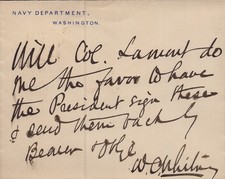 NAVY DEPARTMENT,
WASHINGTON.
Will Col. Lamont do
me the favor to have
the President sign these
& send them back by
Bearer & oblge
W C Whitney